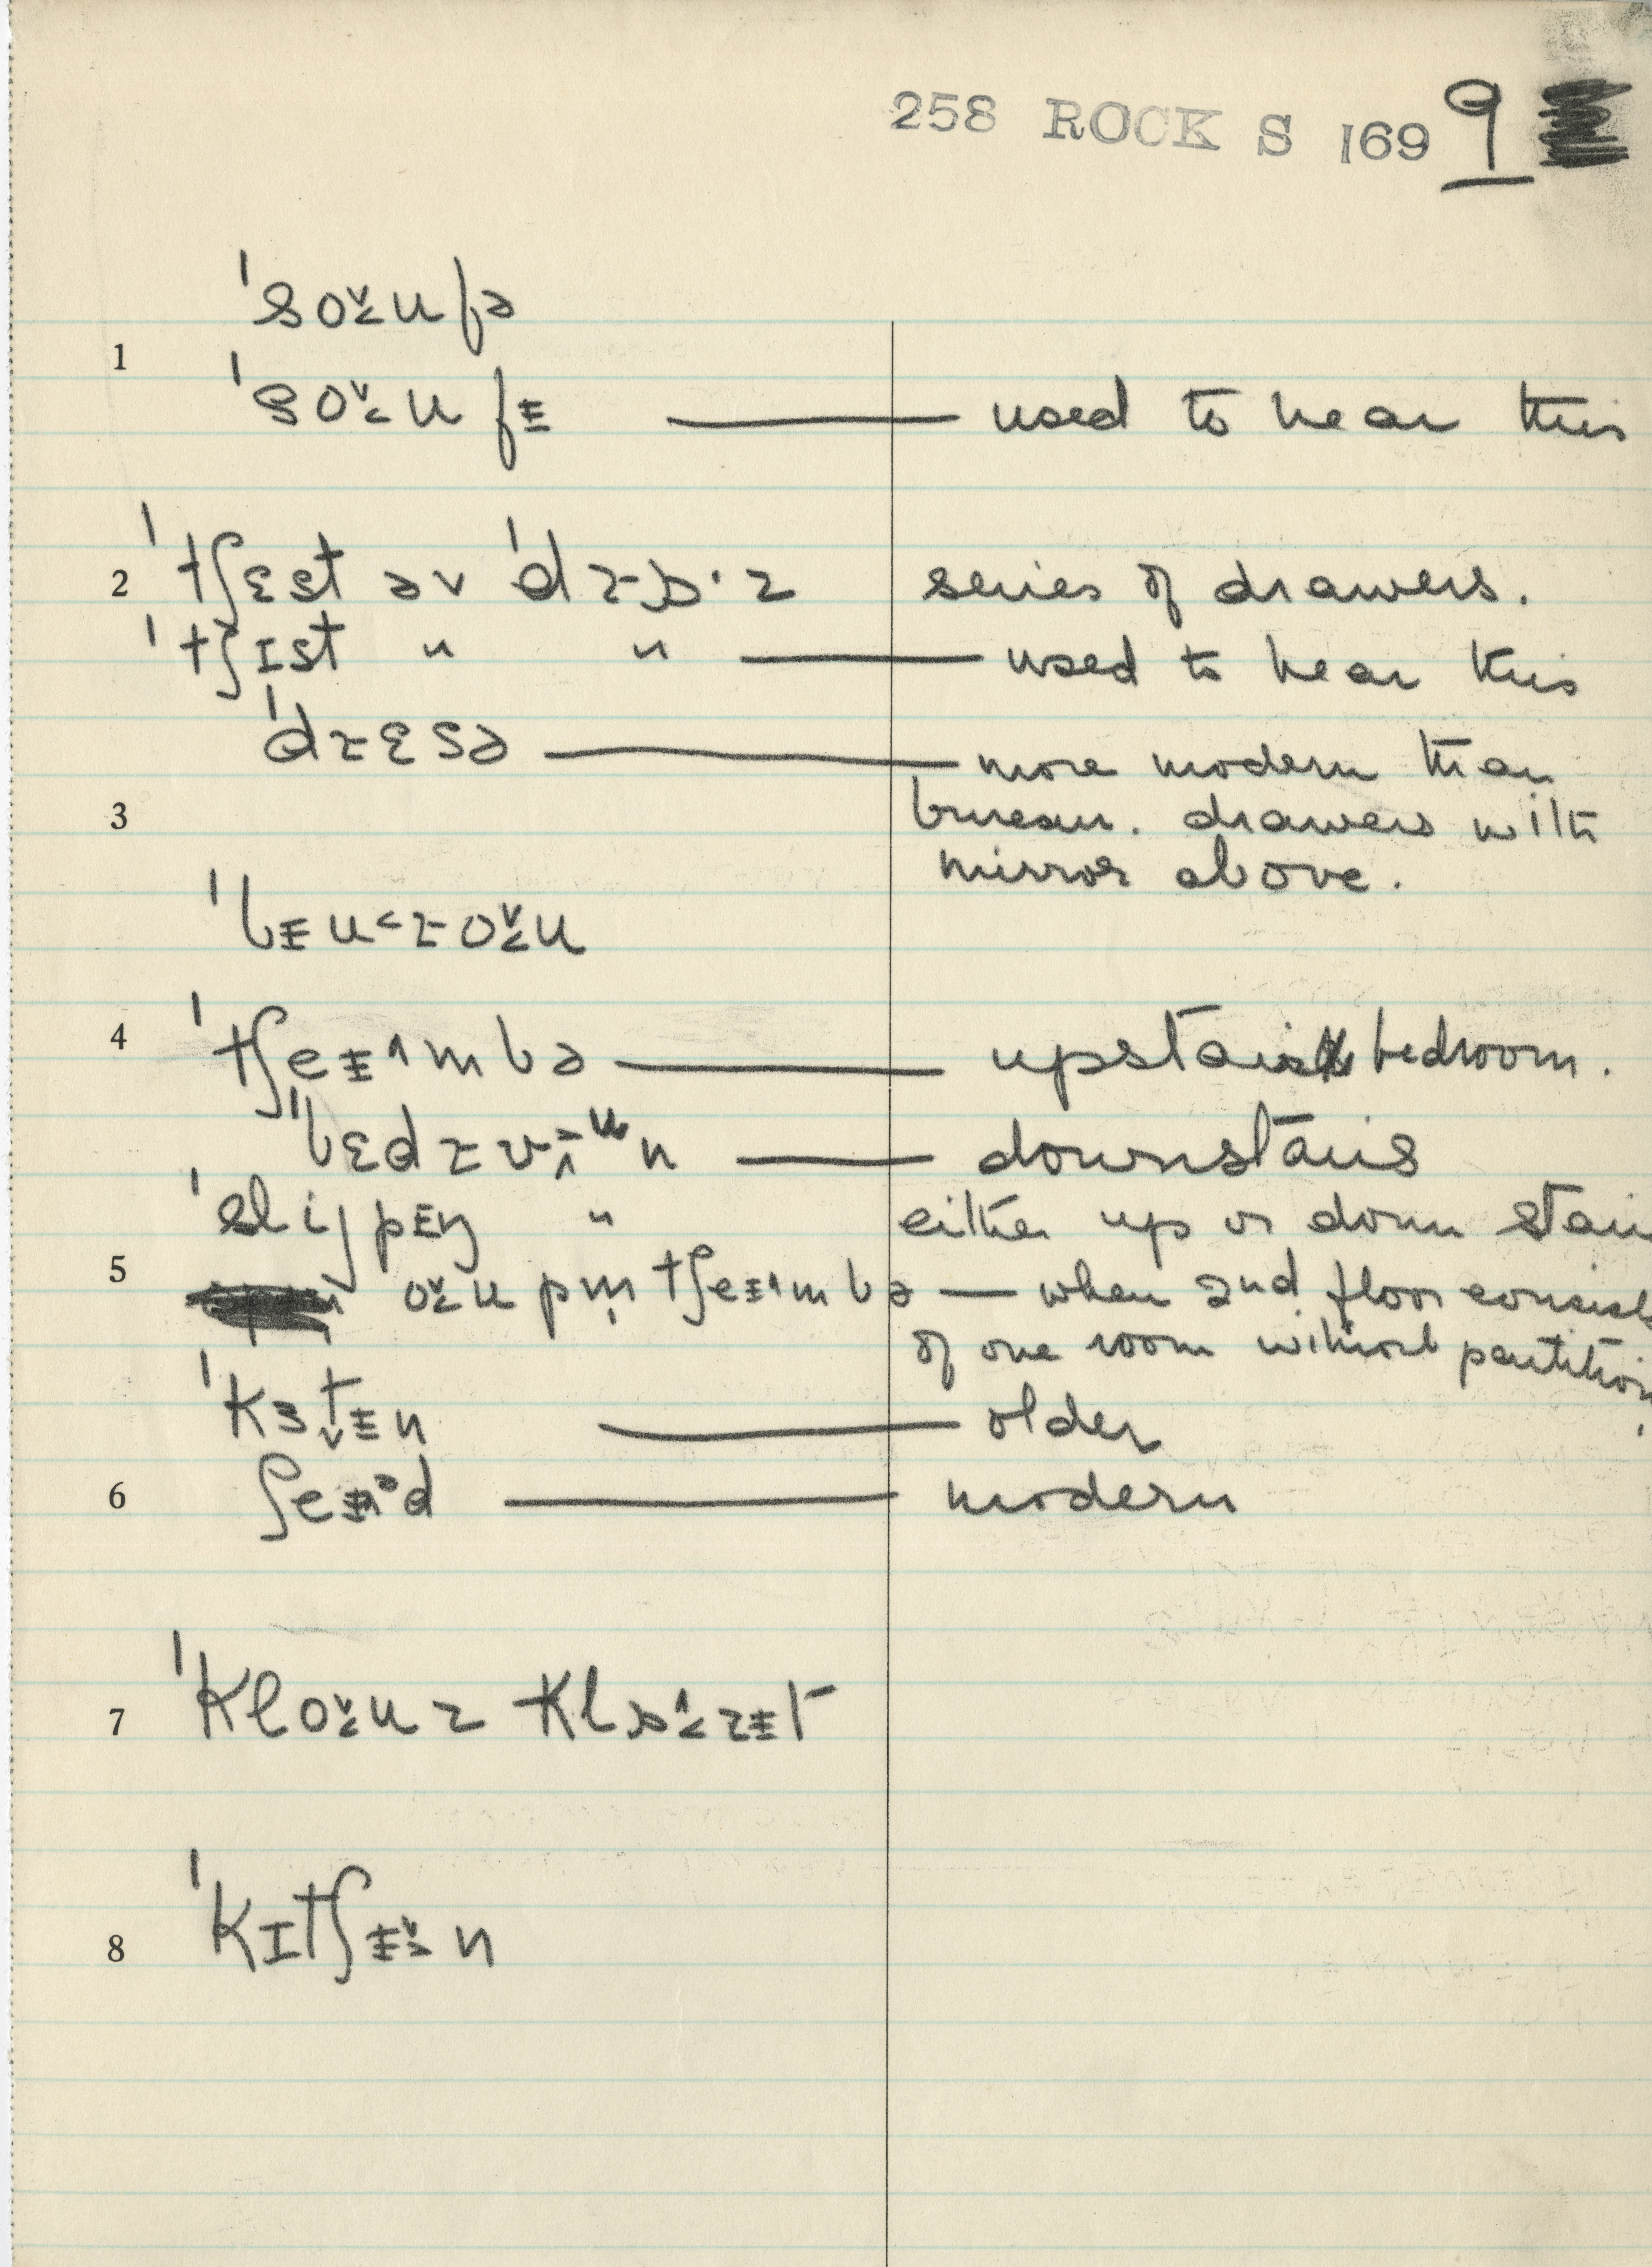 258 ROCK S 169 9
ˈsoʊfə
1
ˈsoʊfɪ — used to hear this
2 ˈtʃɛst əv ˈdrɒ·z series of drawers.
ˈtʃɪst " " — used to hear this
ˈdrɛsə — more modern than
3 bureau. drawers with
mirror above.
ˈbɨuroʊ
4 ˈtʃeɨmbə — upstairs bedroom.
ˈbɛdrʊn — downstairs
ˈslijpɨŋ " either up or down stairs
5 oʊpm̩ tʃeɨmbə — when 2nd floor consists
of one room without partition.
ˈkɜtɨn — older
6 ʃeɨəd — modern
7 ˈkloʊz klɒzɨt
8 ˈkɪtʃɨn